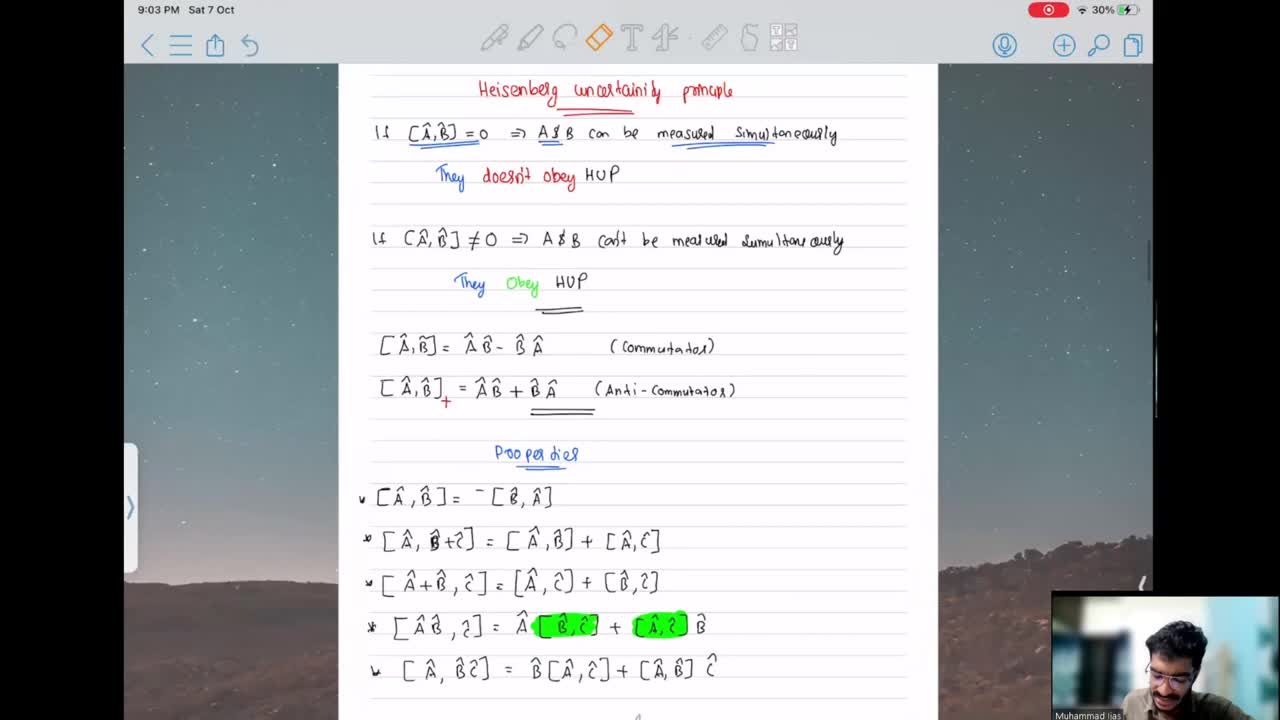 9:03 PM Sat 7 Oct
30%
Heisenberg uncertainity principle
If [Â,B̂] = 0 ⇒ A & B can be measured simultaneously
They doesn't obey HUP
If [Â,B̂] ≠ 0 ⇒ A & B can't be measured simultaneously
They Obey HUP
[Â,B̂] = ÂB̂ - B̂Â (Commutator)
[Â,B̂]₊ = ÂB̂ + B̂Â (Anti-Commutator)
Properties
[Â,B̂] = -[B̂,Â]
* [Â, B̂+Ĉ] = [Â,B̂] + [Â,Ĉ]
* [Â+B̂,Ĉ] = [Â,Ĉ] + [B̂,Ĉ]
* [ÂB̂,Ĉ] = Â[B̂,Ĉ] + [Â,Ĉ]B̂
[Â,B̂Ĉ] = B̂[Â,Ĉ] + [Â,B̂]Ĉ
Muhammad Ijas